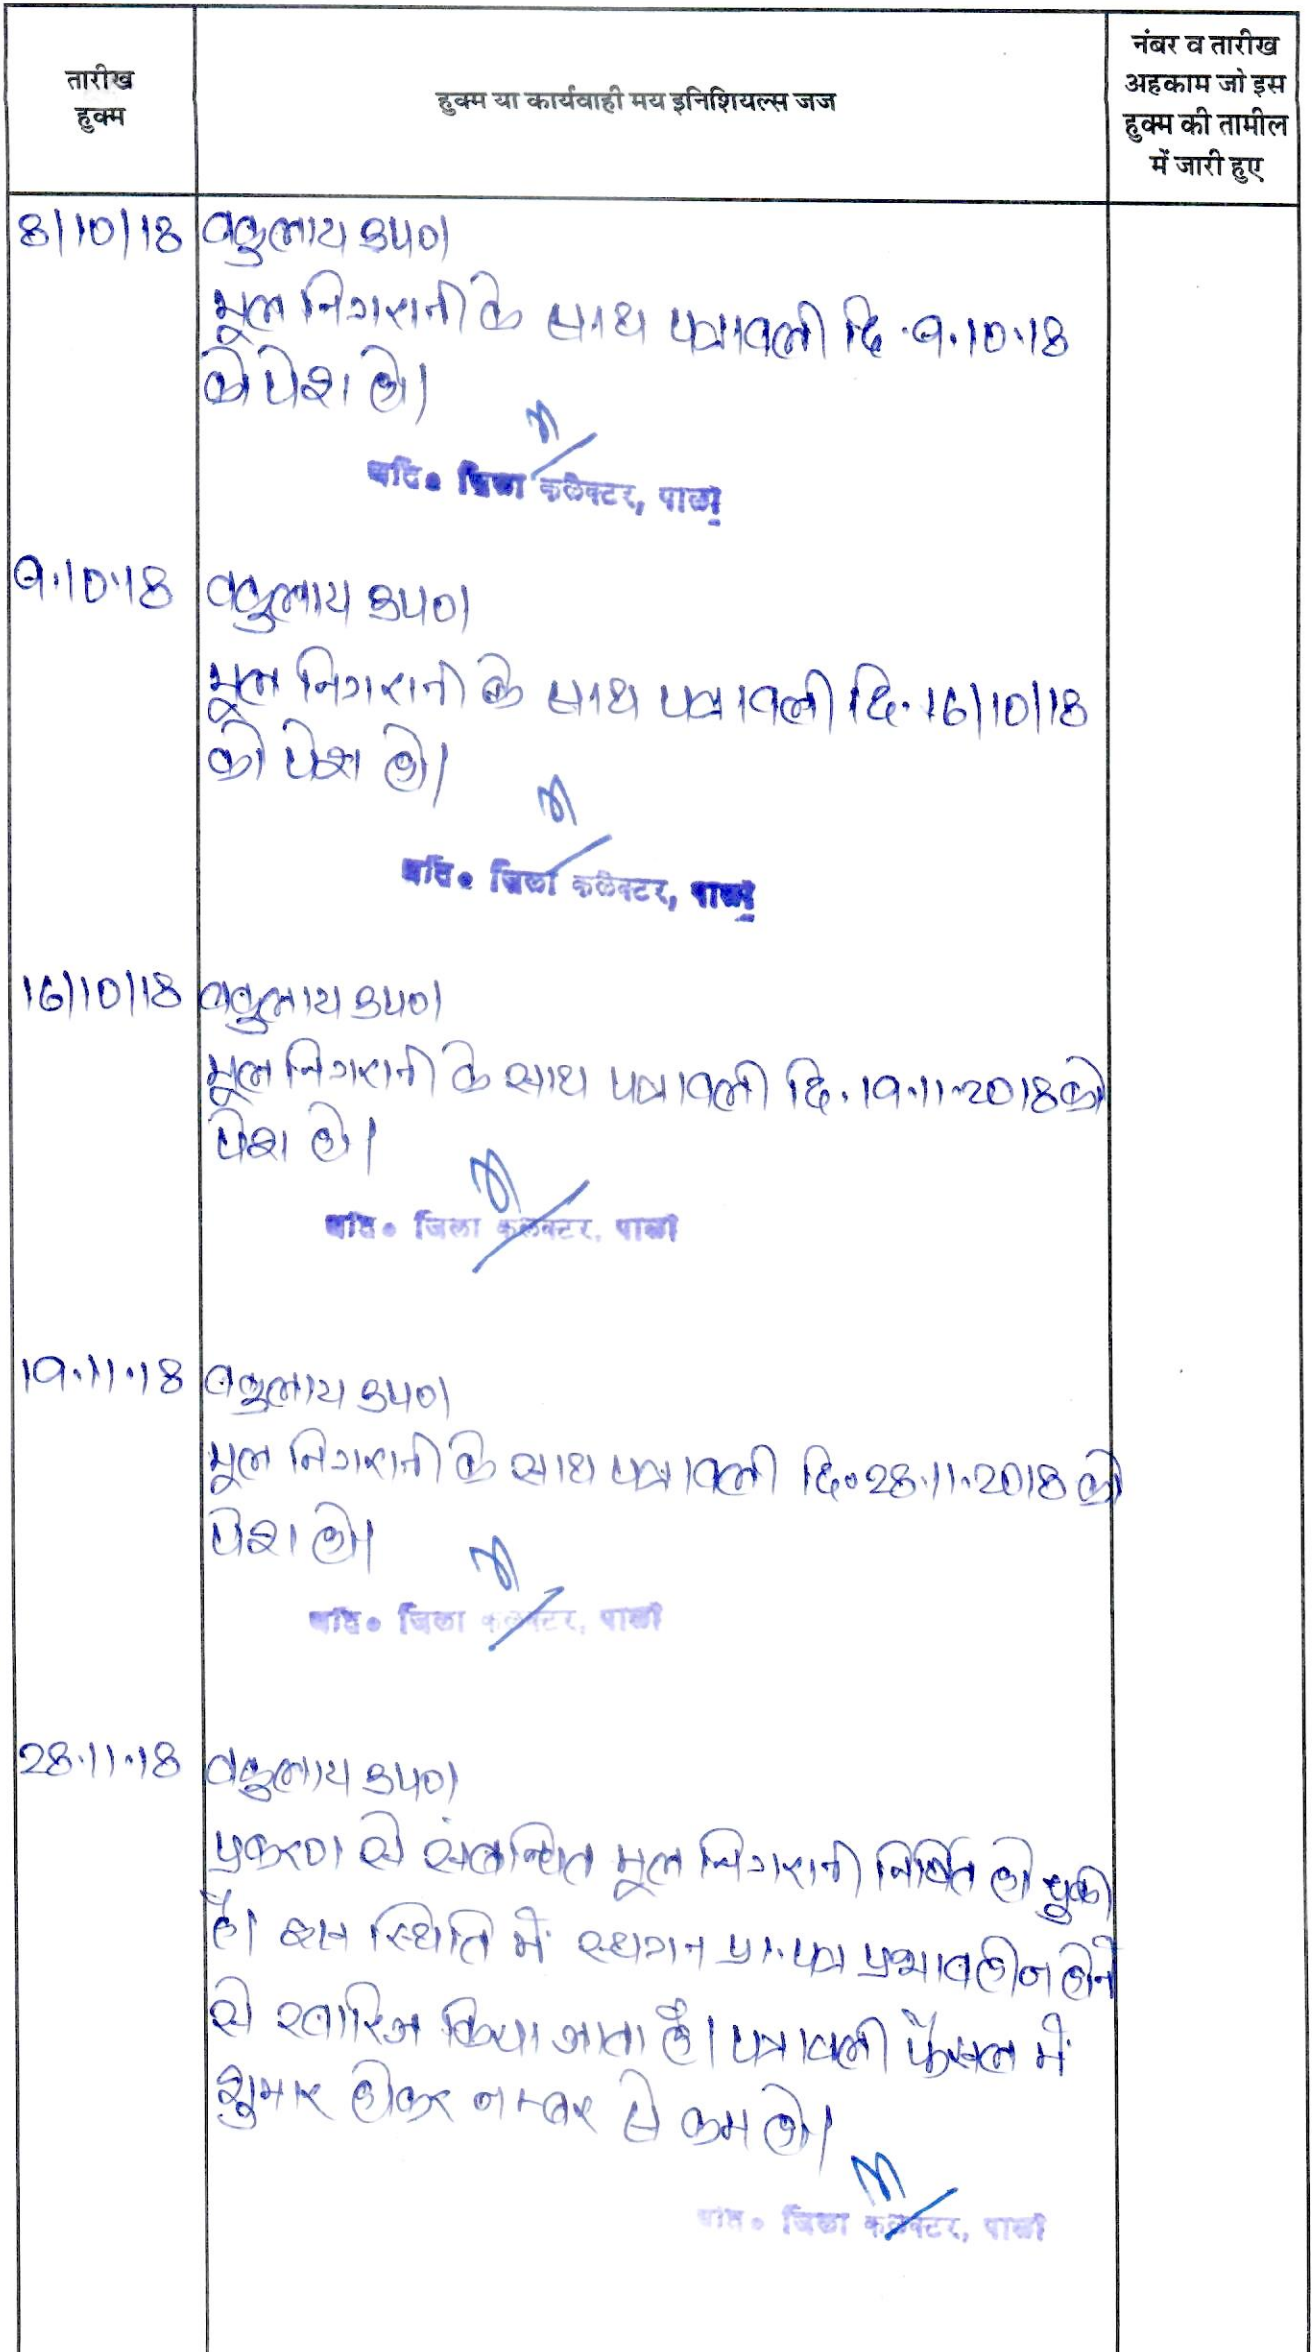 तारीख
हुक्म
हुक्म या कार्यवाही मय इनिशियल्स जज
नंबर व तारीख
अहकाम जो इस
हुक्म की तामील
में जारी हुए
8/10/18 वकुलाय उप०।
मूल निगरानी के साथ पत्रावली दि.9.10.18
को पेश हो।
अति० जिला कलेक्टर, पाली
9.10.18 वकुलाय उप०।
मूल निगरानी के साथ पत्रावली दि. 16/10/18
को पेश हो।
अति० जिला कलेक्टर, पाली
16/10/18 वकुलाय उप०।
मूल निगरानी के साथ पत्रावली दि. 19.11.2018 को
पेश हो।
अति० जिला कलेक्टर, पाली
19.11.18 वकुलाय उप०।
मूल निगरानी के साथ पत्रावली दि० 28.11.2018 को
पेश हो।
अति० जिला कलेक्टर, पाली
28.11.18 वकुलाय उप०।
प्रकरण से संबन्धित मूल निगरानी निर्णित हो चुकी
है। इस स्थिति में स्थगन प्रा.पत्र प्रभावहीन होने
से खारिज किया जाता है। पत्रावली फैसल में
शुमार होकर नम्बर से कम हो।
अति० जिला कलेक्टर, पाली